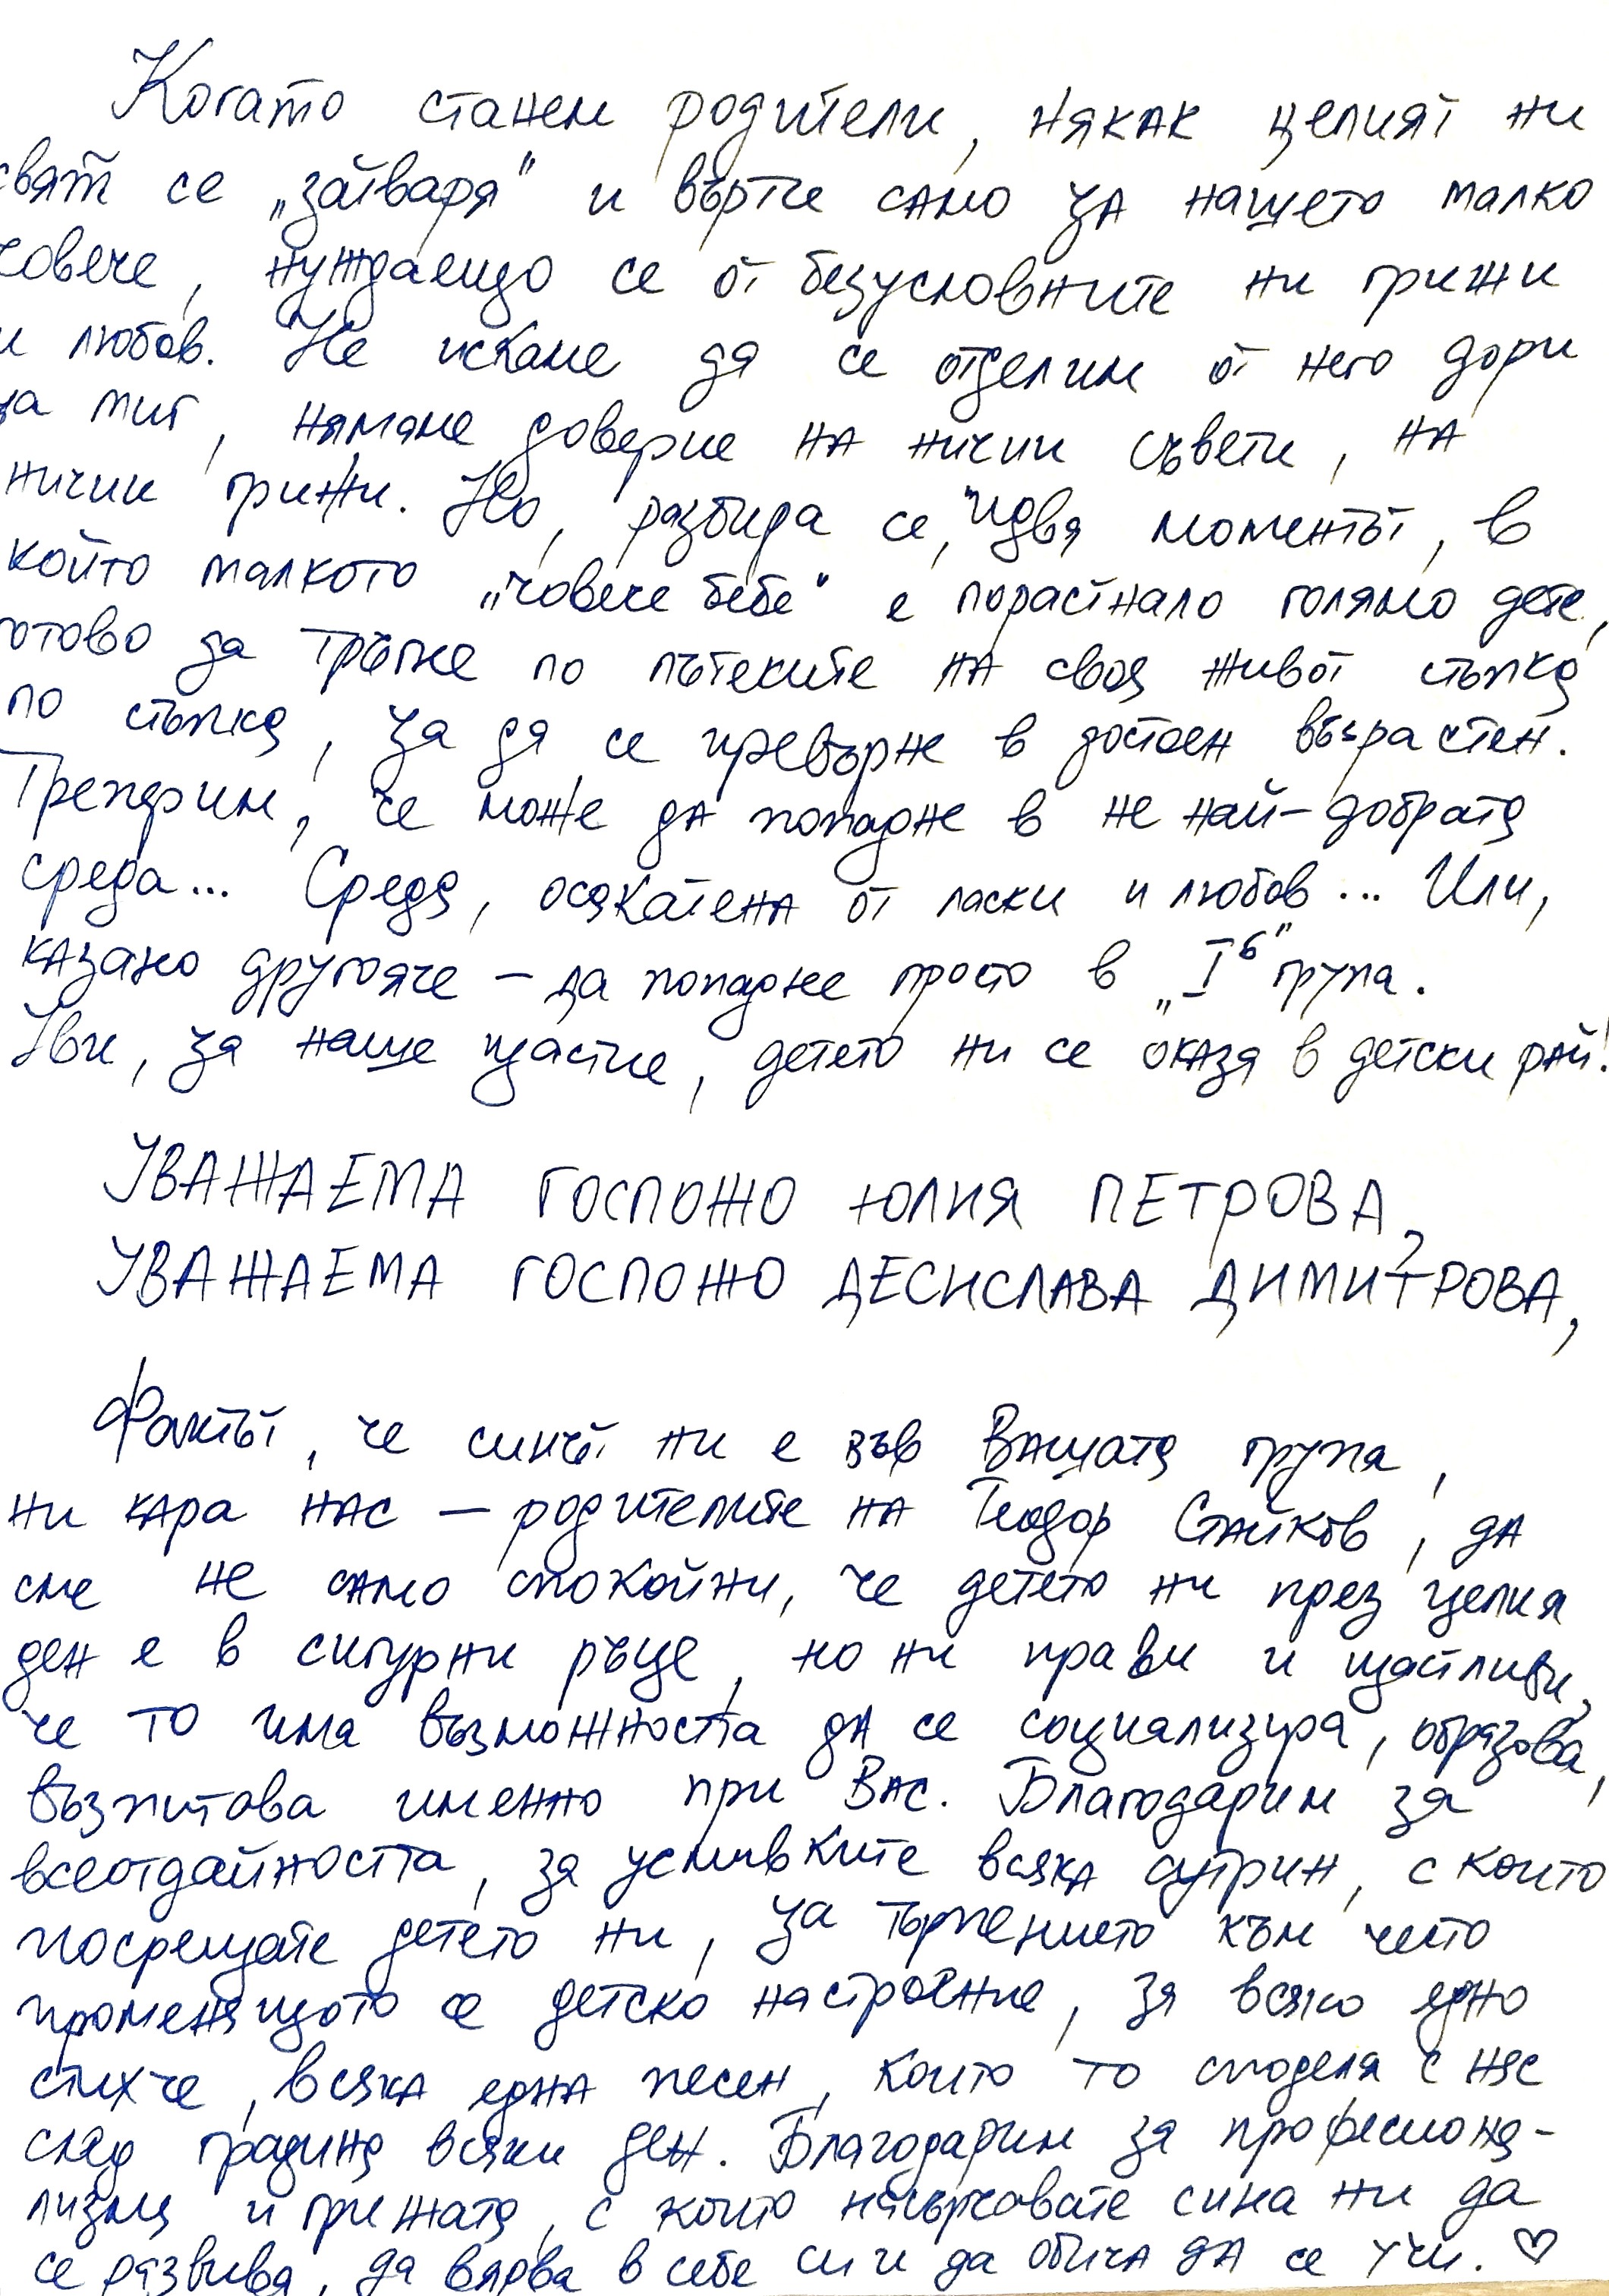 Когато станем родители, някак целият ни
свят се „затваря" и върти само за нашето малко
човече, нуждаещо се от безусловните ни грижи
и любов. Не искаме да се отделим от него дори
за миг, нямаме доверие на ничии съвети, на
ничии грижи. Но, разбира се, идва моментът, в
който малкото „човече бебе" е порастнало голямо дете,
готово за тръгне по пътеките на своя живот стъпка
по стъпка, за да се превърне в достоен възрастен.
Треперим, че може да попадне в не най-добрата
среда... Среда, осакатена от ласки и любов... Или,
казано другояче - да попадне просто в „I б" група.
Уви, за наше щастие, детето ни се оказа в детски рай!
УВАЖАЕМА ГОСПОЖО ЮЛИЯ ПЕТРОВА,
УВАЖАЕМА ГОСПОЖО ДЕСИСЛАВА ДИМИТРОВА,
Фактът, че синът ни е във Вашата група,
ни кара нас - родителите на Теодор Стайков, да
сме не само спокойни, че детето ни през целия
ден е в сигурни ръце, но ни прави и щастливи,
че то има възможността да се социализира, образова,
възпитова именно при Вас. Благодарим за
всеотдайността, за усмивките всяка сутрин, с които
посрещате детето ни, за търпението към често
променящото се детско настроение, за всяко едно
стихче, всяка една песен, които то споделя с нас
след градина всеки ден. Благодарим за професиона-
лизма и грижата, с които насърчавате сина ни да
се развива, да вярва в себе си и да обича да се учи. ♡